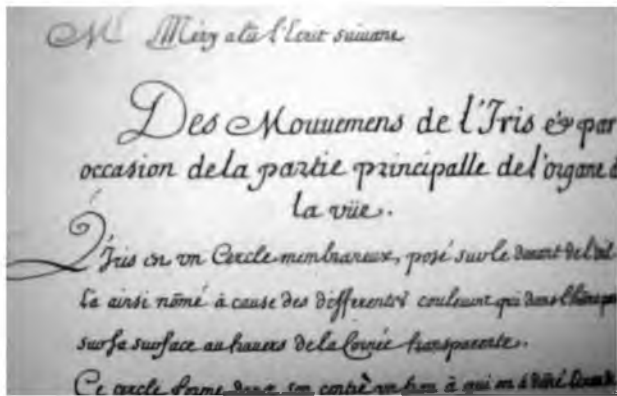 Mr. Méry a lû l'Ecrit suivant
Des Mouuemens de l'Iris & par
occasion de la partie principalle de l'organe d
la vüe.
L'Iris est vn Cercle membraneux, posé sur le deuant de l'œil
L'a ainsi nõmé à cause des differentes couleurs qui dans l'
sur sa surface au trauers de la Cornée transparente.
Ce cercle forme dans son centre vn trou à qui on a dõné